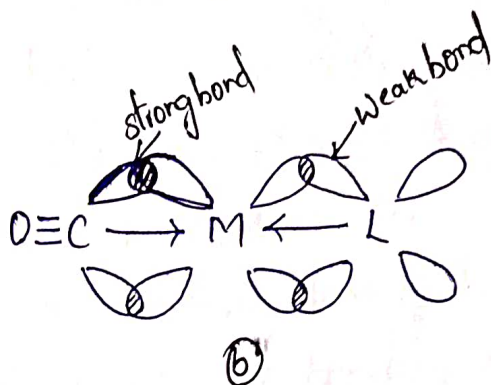 strong bond
Weak bond
O≡C → M ← L
(b)